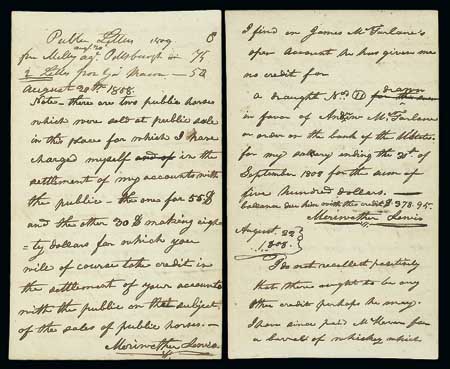 Public Letters 1809
from Melly agt Pittsburgh
2 Letters from Gn Macon — 50
August 20th 1808.
Note – there are two public horses
which were sold at public sale
in this place for which I have
charged myself and of in the
settlement of my accounts with
the public – the one for 55$
and the other 30$ making eigh=
=ty dollars for which you
will of course take credit in
the settlement of your accounts
with the public on that subject
of the sales of public horses. –
Meriwether Lewis.
I find in James McFarlane's
open account he has given me
no credit for
a draught No. 11 drawn
in favor of Andrew McFarlane
or order on the bank of the U States
for my salary ending the 30th of
September 1808 for the sum of
five hundred dollars. —
ballance due him with the credit $378.95.
Meriwether Lewis
August 22
1808.
I do not recollect positively
that there ought to be any
other credit perhaps he may.
I have since paid McKeever for
a barrel of whiskey which